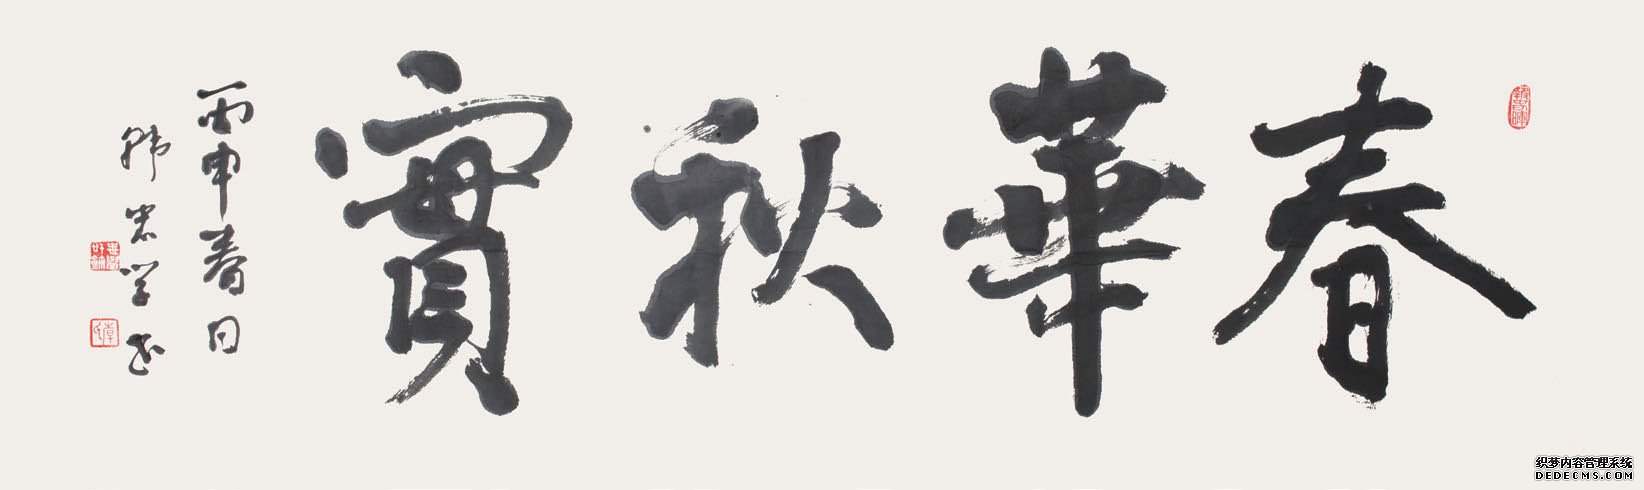 春華秋實
丙申春日
韩忠学书
织梦内容管理系统
DEDECMS.COM